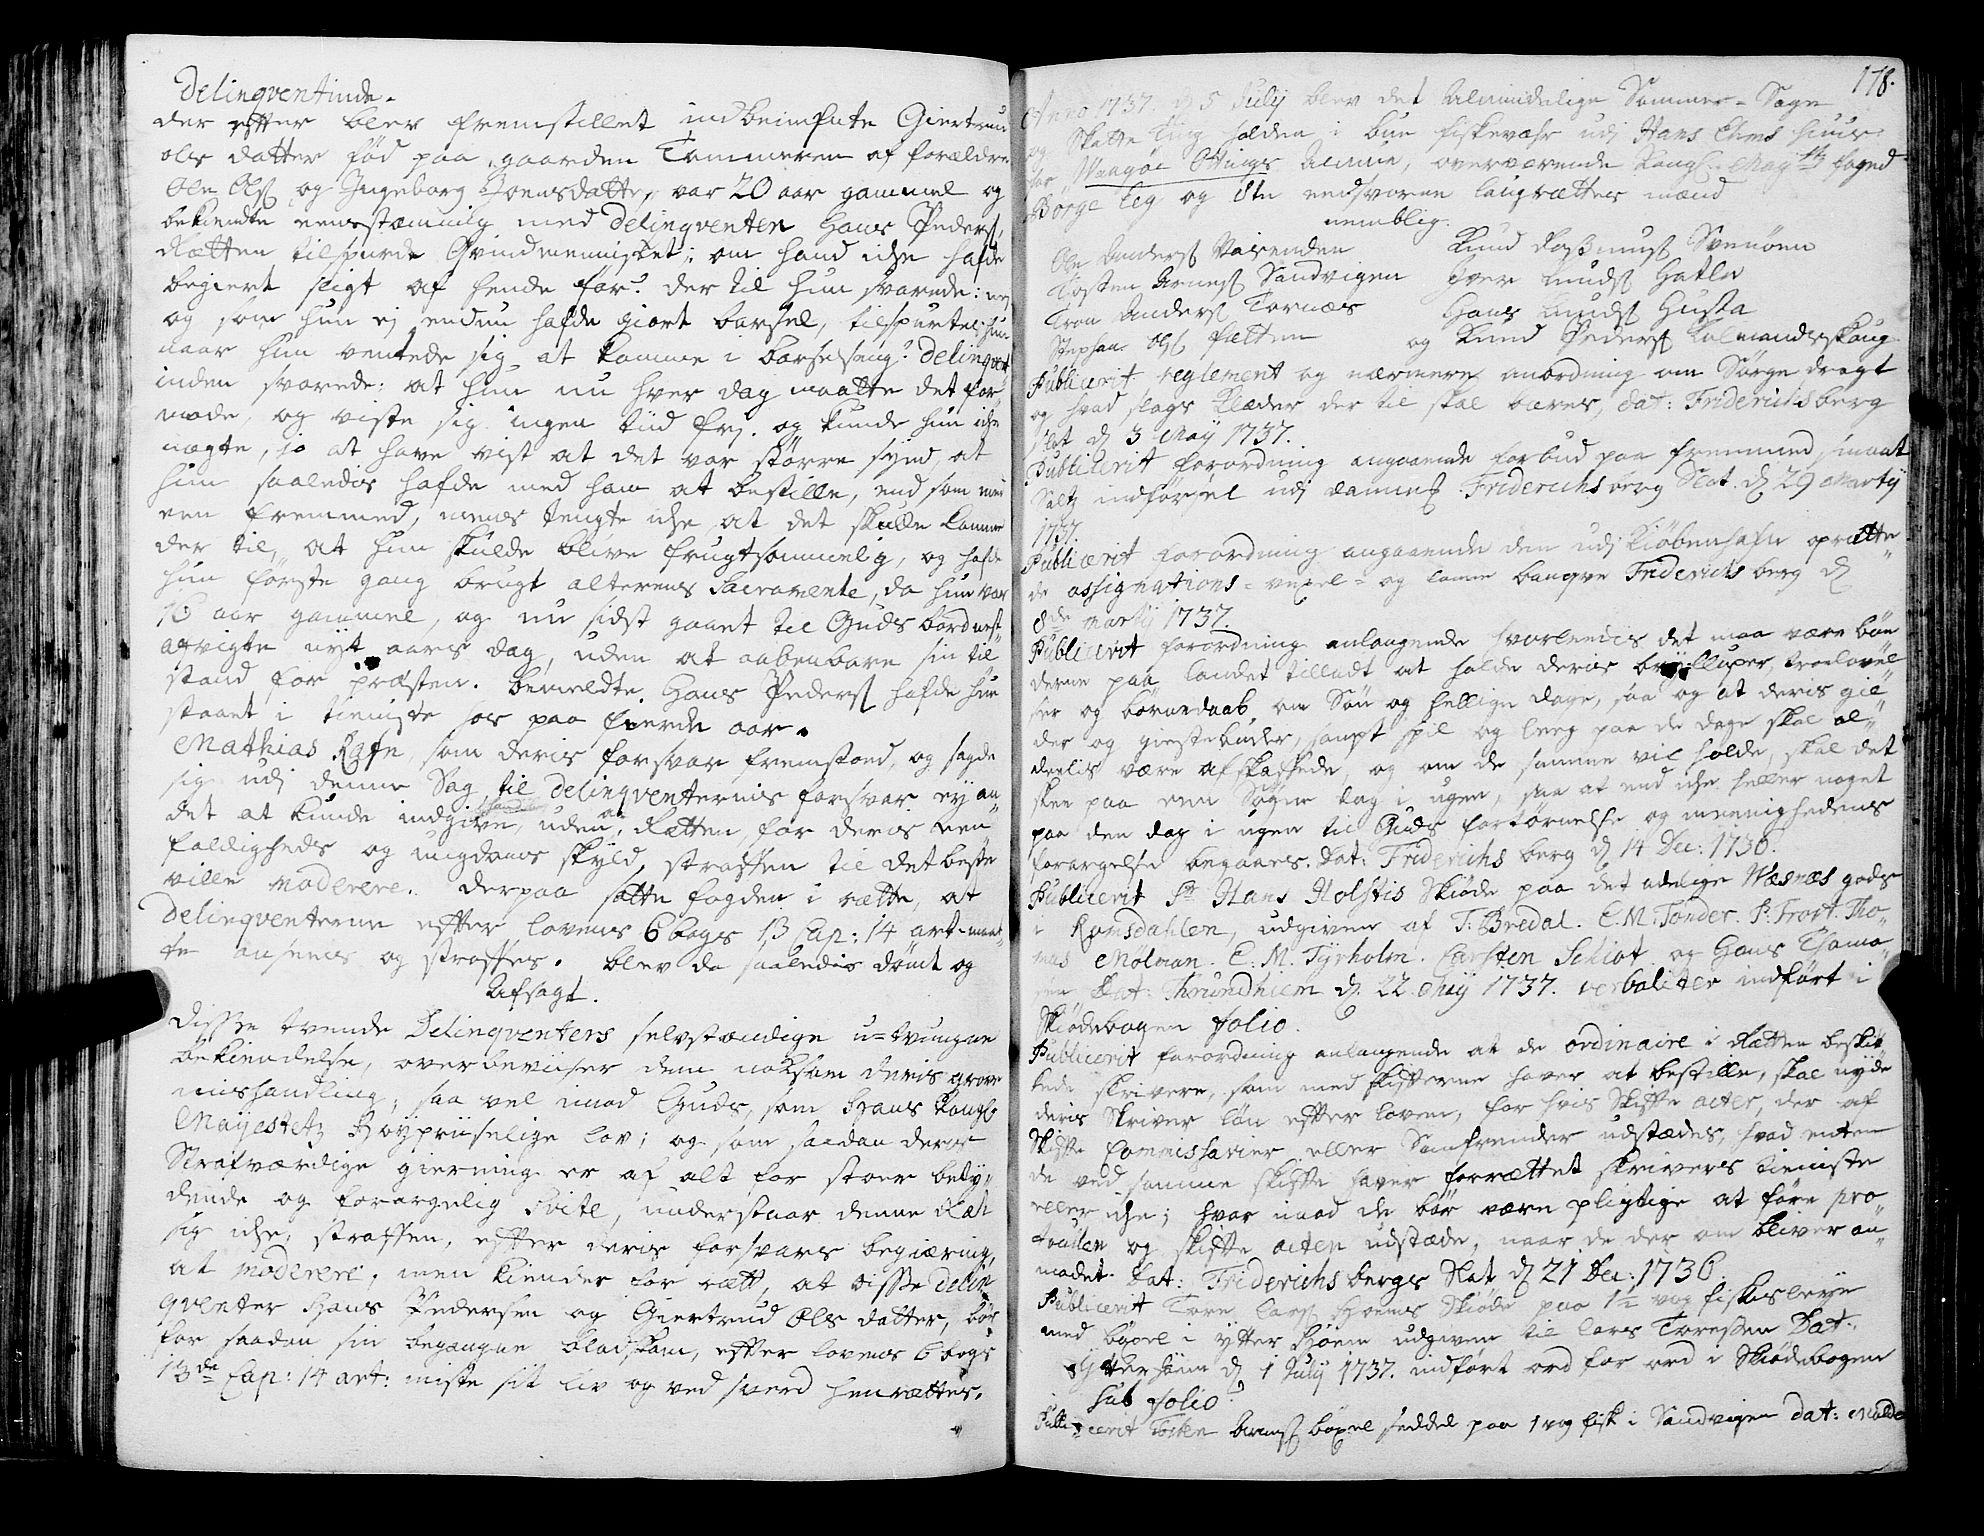 Delinqventinde.
der effter blev fremstillet indbemeldte Giertrud
Ols datter fød paa gaarden Tommeren af forældre
Ole Ols: og Ingeborg Joensdatter, var 20 aar gammel og
bekiendte eensstæmmig med Delinqventen Hans Peders:
Rætten tilspurte Qvindemennisket; om hand iche hafde
begiert sligt af hende før? der til hun svarede: ney
og som hun ej endnu hafde giort barsel, tilspurtes hun
naar hun ventede sig at komme i barselseng? Delinqvent
inden svarede: at hun nu hver dag maatte det for
mode, og viste sig ingen tiid frj. og kunde hun iche
nægte, jo at have vist at det var større synd, at
hun saaledis hafde med ham at bestille, end som med
een fremmed, mens tengte iche at det skulle komme
der til, at hun skulde blive frugtsommelig, og hafde
hun første gang brugt alterens Sacramente, da hun var
16 aar gammel, og nu sidst gaaet til Guds bord nest
afvigte nyt aars dag, uden at aabenbare sin til
stand for præsten. bemeldte Hans Peders: hafde hun
staaet i tieniste hos paa fierde aar.
Mathias Rafn, som deris forsvar fremstoed, og sagde
sig udj denne Sag til Delinqventernis forsvar ey an
det at kunde indgive, uden at Rætten, for deris een
foldigheds og ungdoms skyld, straffen til det beste
ville moderere. derpaa satte fogden i rætte, at
Delinqventerne effter lovens 6 bogs 13 Cap: 14 art. maat
te ansees og straffes. blev da saaledis dømt og
Afsagt.
Disse tvende Delinqventers selvstændige u-tvungne
bekiendelse, overbeviiser dem noksom deris grove
mishandling, saa vel imod Guds, som Hans Kongl:
Mayestetz Høypriiselige lov; og som saadan deris
Strafværdige gierning er af alt for stoer bety
dende og forargelig Svite, understaar denne Ræt
sig iche, straffen, effter deris forsvars begiæring,
at moderere, men kiender for rætt, at disse Delin
qventer Hans Pedersen og Giertrud Ols datter, bør
for saadan sin begangne blodskam, effter lovens 6 bogs
13de Cap: 14 art: miste sit liv og ved sverd henrættes.
178.
Anno 1737. d 5 July blev det Almindelige Sommer-Sage
og Skatte Ting holden i bue fiskevær udj Hans Ehms huus
for Waagøe Ottings Almue, overværende Kongl. Mayts foged
Børge Eeg og 8te eedsvorne laugrættes mænd
nemblig.
Ole Anders: Wærenden Knud Rasmus: Svenøen
Tosten Arnes: Sandvigen Iver Knuds: Hatle
Tron Anders: Tornæs Hans Knuds: Husta
Stephan Ols: Sætten og Knud Peders: Kalmanderskaug
Publicerit reglement og nærmere anordning om Sørge dragt
og hvad slags Klæder der til skal bæres, dat: Friderichsberg
slot d 3 May 1737.
Publicerit forordning angaaende forbud paa fremmed smaat
Saltz indførsel udj Danm: Friderichsberg Slot. d 29 Marty
1737.
Publicerit forordning angaaende den udj Kiøbenhafn oprætte
de assignations- vexel- og laane banqve Friderichsberg d
8de Marty 1737.
Publicerit forordning anlangende hvorledes det maa være bøn
derne paa landet tilladt at holde deris brylluper, troelovel
ser og børnedaab om Søn og hellige dage, saa og at deris gil
der og giestebuder, sampt spil og leeg paa de dage skal al
deelis være afskaffede, og om de samme vil holde, skal det
skee paa een Søgne dag i ugen, saa at end iche heller noget
paa den dag i ugen til Guds fortørnelse og meenighedens
forargelse begaaes. Dat: Friderichs berg d 14 Dec: 1736.
Publicerit Sr Hans Holstis Skiøde paa det adelige Wæsnæs gods
i Romsdahlen, udgiven af T: Bredal. E. M. Tønder. P: Frost. Tho
mas Mølman. E: M. Tyrholm. Carsten Schiøt og Hans Thoma
sen Dat: Thrundhiem d. 22 May 1737. verbaliter indført i
Skiødebogen folio.
Publicerit forordning anlangende at de ordinaire i Rætten beskik
kede skrivere, som med skifterne haver at bestille, skal nyde
deris Skriver løn effter loven, for hvis Skiffte acter, der af
Skiffte Commissarier eller Samfrender udstædes, hvad enten
de ved samme skiffte haver forrættet skrivers tieniste
eller iche; hvor imod de bør være pligtige at føre pro
tocollen og skiffte acten udstæde, naar de der om bliver an
modet. Dat: Friderichs bergs Slot d 21 Dec: 1736
Publicerit Tore Lars: Hoems Skiøde paa 1½ vog fiskisleye
med bøxel i ytter Hoem udgiven til Lars Toressen Dat:
Ytterhoem d 1 July 1737. indført ord for ord i Skiødebogen
sub folio
Publicerit Tosten Arnes: bøxel seddel paa 1 vog fisk i Sandvigen dat: Molde